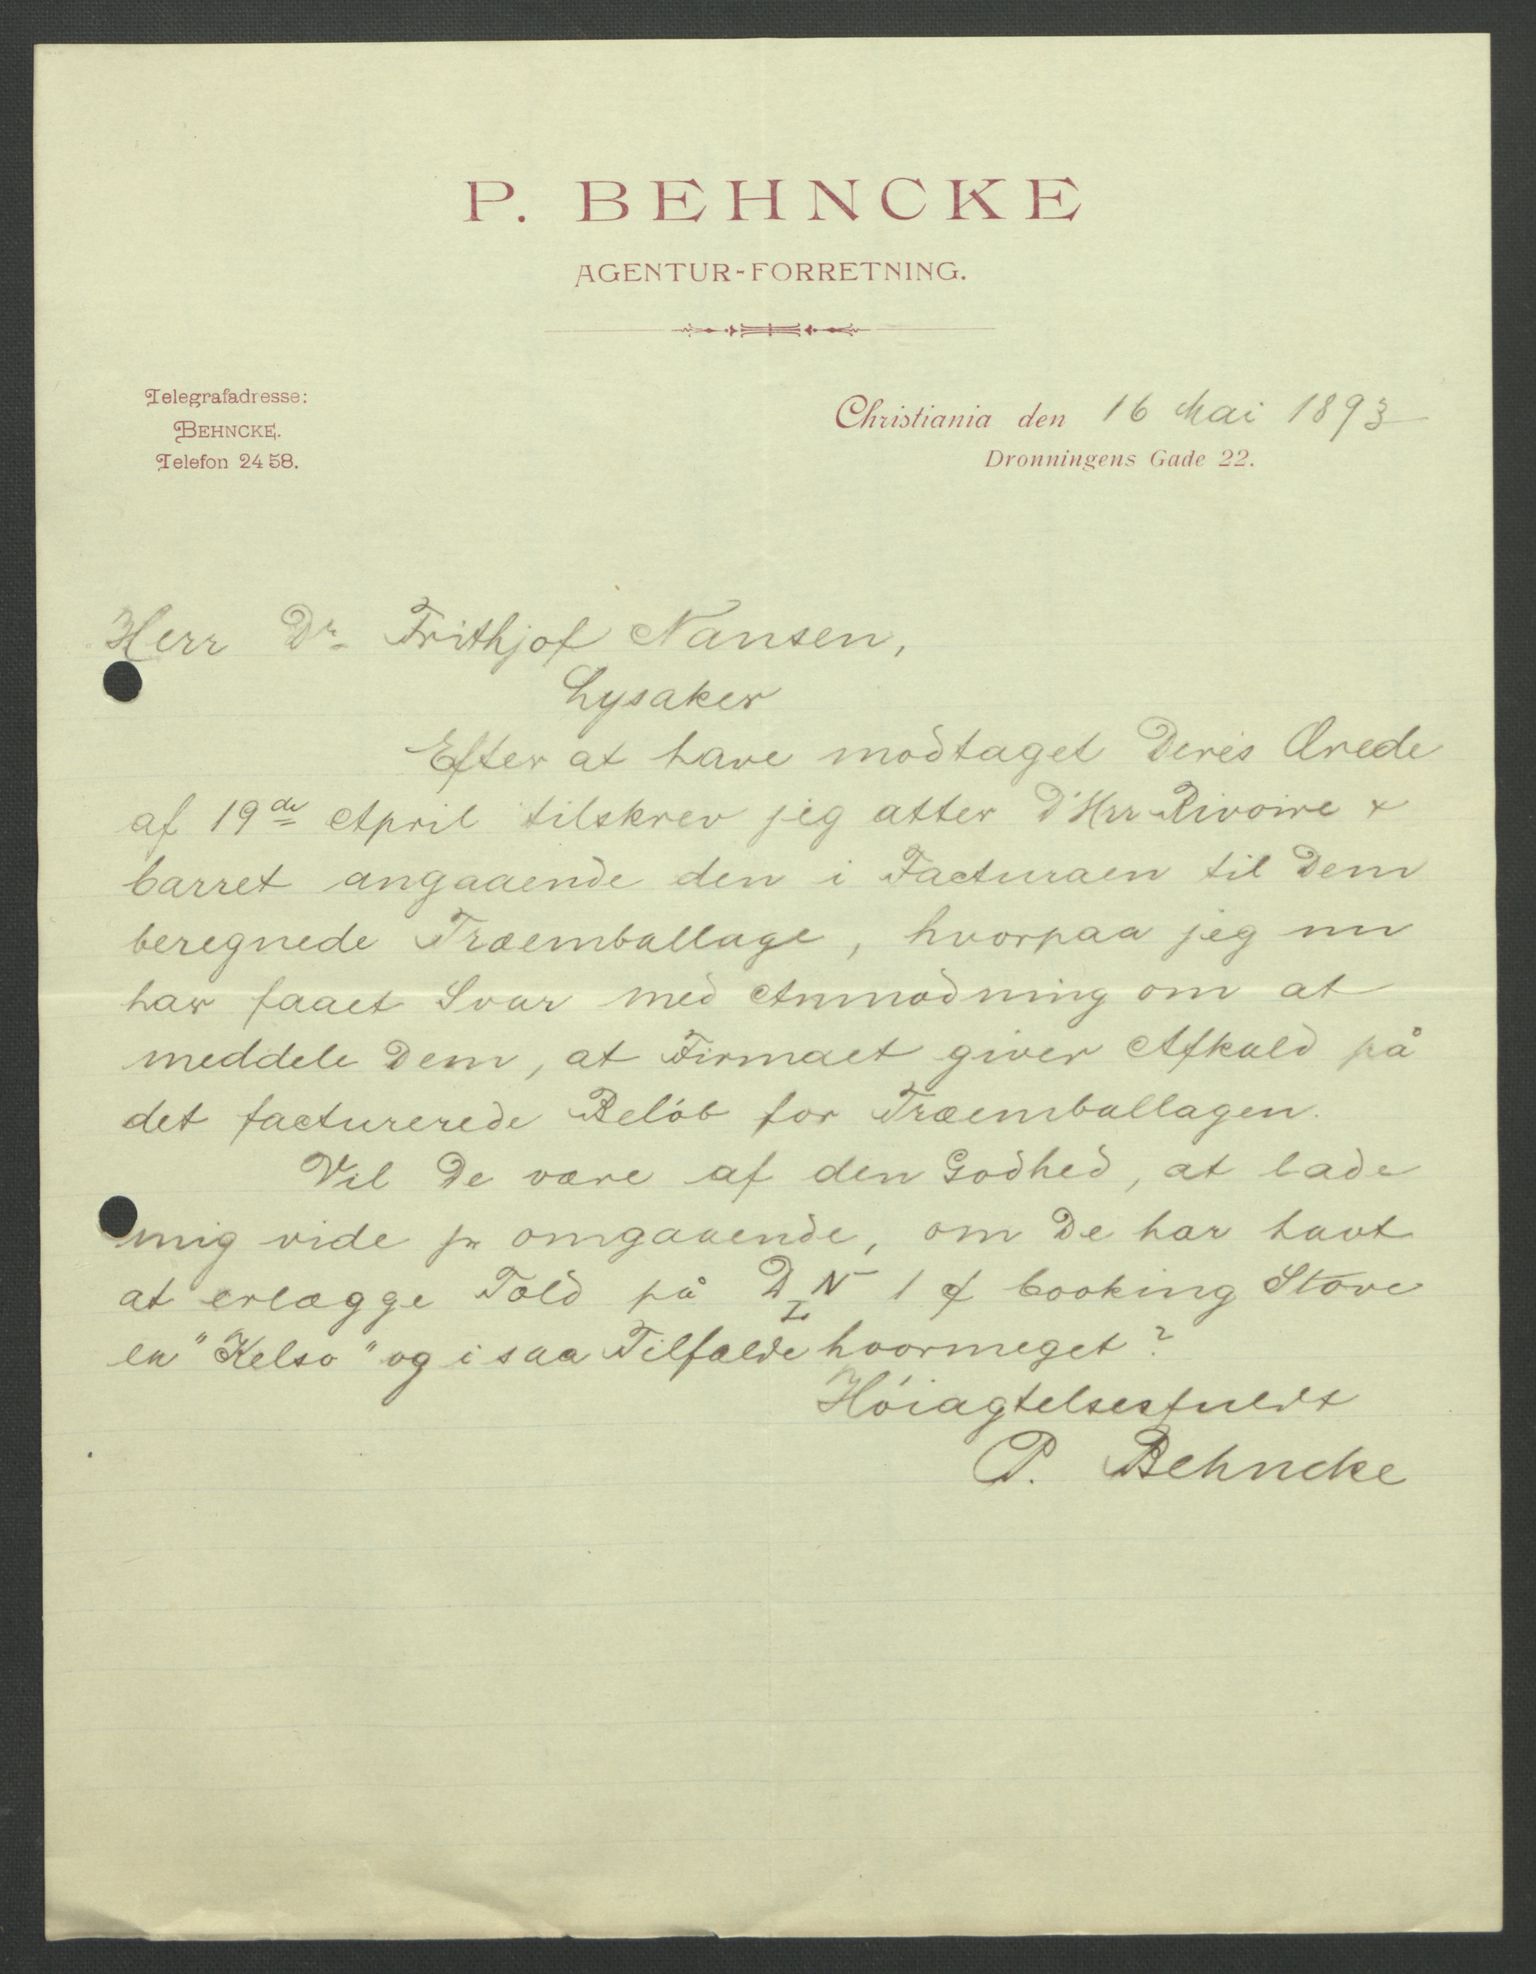 P. BEHNCKE
AGENTUR-FORRETNING.
Telegrafadresse:
BEHNCKE.
Telefon 2458.
Christiania den 16 Mai 1893
Dronningens Gade 22.
Herr Dr. Frithjof Nansen,
Lysaker
Efter at have modtaget Deres Ærede
af 19de April tilskrev jeg atter D'Hrr Rivoire &
Carret angaaende den i Facturaen til Dem
beregnede Træemballage, hvorpaa jeg nu
har faaet Svar med Anmodning om at
meddele Dem, at Firmaet giver Afkald på
det facturerede Beløb for Træemballagen.
Vil De være af den Godhed, at lade
mig vide pr omgaaende, om De har havt
at erlægge Told på D N 1 Cooking Stove
ex "Kelso" og i saa Tilfælde hvormeget?
Høiagtelsesfuldt
P. Behncke